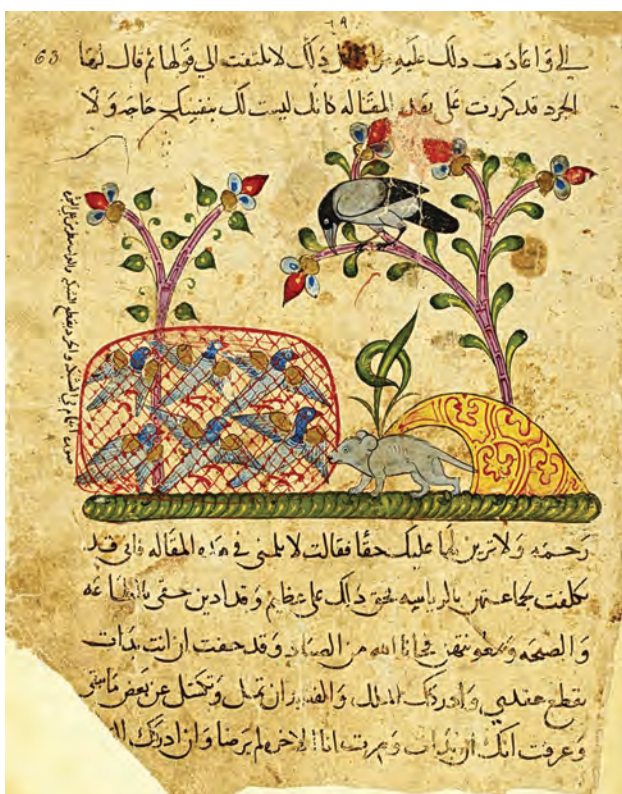 ٦٩
63
الي واعادت ذلك عليه مرارا كل ذلك لا يلتفت الي قولها ثم قال لها
الجرد قد كررت علي بهذه المقاله كانك ليست لك بنفسك حاجه ولا
صورة الحمام في الشبكة والجرد يقطع الشبك
رحمه ولا ترين لها عليك حقا فقالت لا تلمني في هذه المقاله فاني قد
تكلفت لجماعتهن بالرياسه فحق ذلك علي عظيم وقد ادين حقي بالطاعه
والنصيحه ومعونتهن نجانا الله من الصياد وقد خفت ان انت بدات
بقطع عقدي وادركك الملل والفتور ان تمل وتكسل عن بعض ما بقي
وعرفت انك ان بدات وكنت انا الاخره لم ترضا وان ادركك